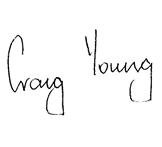 Craig Young